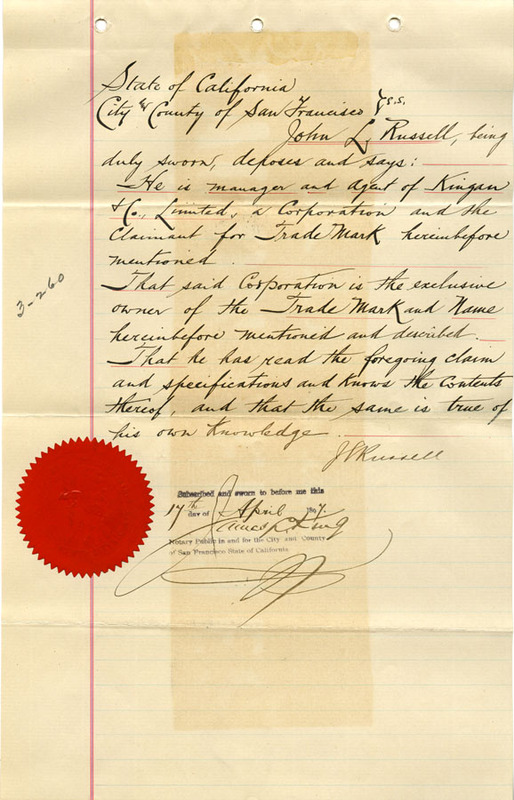 State of California
City & County of San Francisco } s.s.
John L. Russell, being
duly sworn, deposes and says:
He is manager and Agent of Kingan
& Co., Limited, a Corporation and the
Claimant for Trade Mark hereinbefore
mentioned.
That said Corporation is the exclusive
owner of the Trade Mark and Name
hereinbefore mentioned and described.
That he has read the foregoing claim
and specifications and knows the Contents
thereof, and that the same is true of
his own knowledge.
J L Russell
3-260
Subscribed and sworn to before me this
17th day of April 1897.
James L. King
Notary Public in and for the City and County
of San Francisco State of California